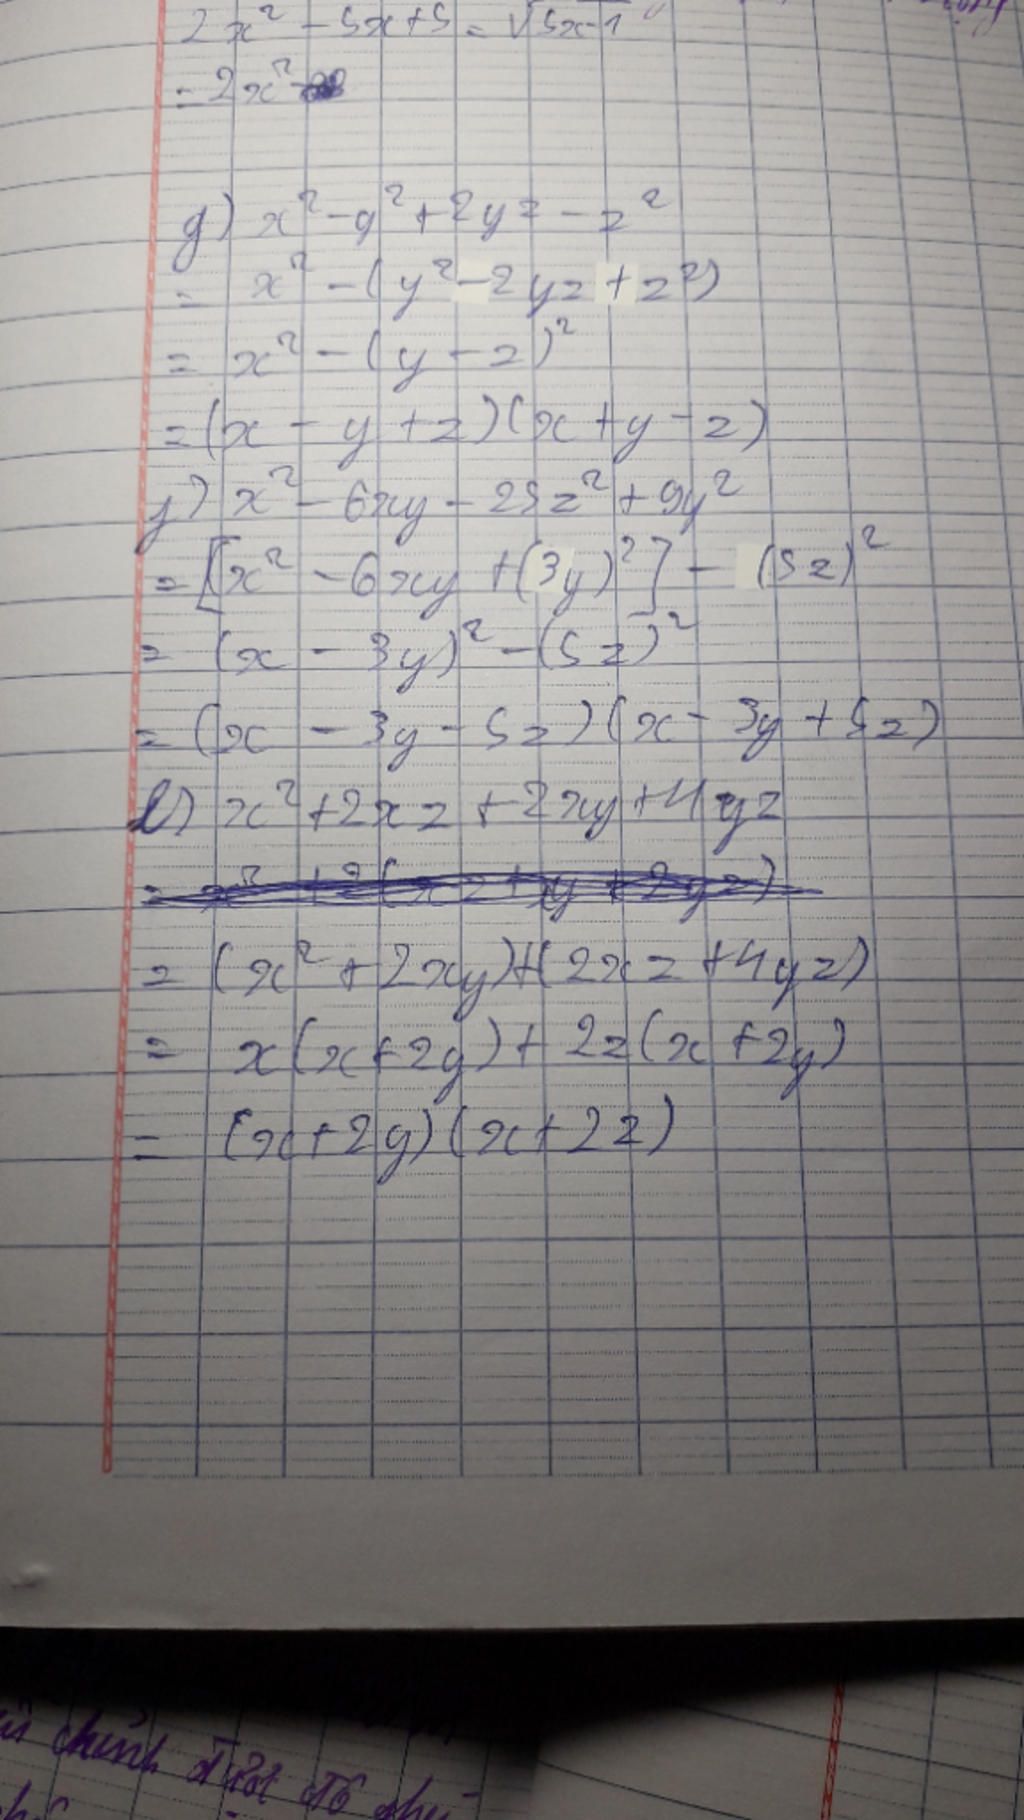 2x² - 5x + 5 = √5x-1
= 2x² -
g) x² - y² + 2yz - z²
= x² - (y² - 2yz + z²)
= x² - (y - z)²
= (x - y + z)(x + y - z)
y) x² - 6xy - 25z² + 9y²
= [x² - 6xy + (3y)²] - (5z)²
= (x - 3y)² - (5z)²
= (x - 3y - 5z)(x - 3y + 5z)
l) x² + 2xz + 2xy + 4yz
= x² + 2(xz + xy + 2yz)
= (x² + 2xy) + (2xz + 4yz)
= x(x + 2y) + 2z(x + 2y)
= (x + 2y)(x + 2z)
chính